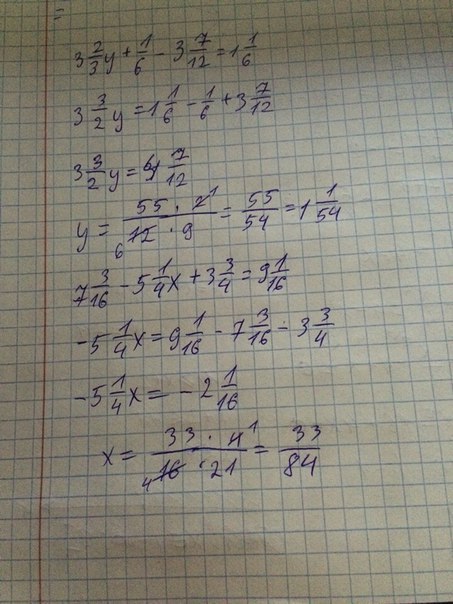 =
3 2/3 y + 1/6 - 3 7/12 = 1 1/6
3 3/2 y = 1 1/6 - 1/6 + 3 7/12
3 3/2 y = 4 7/12
y = 55 · 2 1 / 6 12 · 9 = 55/54 = 1 1/54
7 3/16 - 5 1/4 x + 3 3/4 = 9 1/16
- 5 1/4 x = 9 1/16 - 7 3/16 - 3 3/4
- 5 1/4 x = - 2 1/16
x = 33 · 4 1 / 4 16 · 21 = 33/84